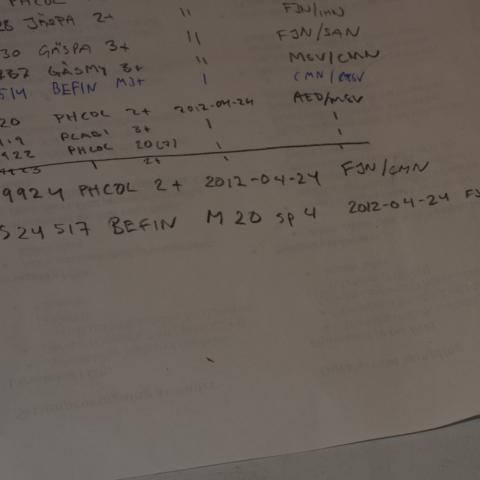 28 JÄSPA 2+ " FJN/IHN
30 GÄSPA 3+ " FJN/SAN
737 GÄSMY 3+ " MGV/CMN
514 BEFIN M3+ 1 CMN/MGV
20 PHCOL 2+ 2012-04-24 AEO/MGV
919 3+ 1 1
922 PHCOL 20(7) 1 1
2+ 1 1
9924 PHCOL 2+ 2012-04-24 FJN/CMN
S24 517 BEFIN M 20 SP 4 2012-04-24 FJ